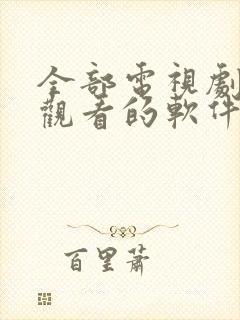 全部電視劇
觀看的軟件
百里蕭